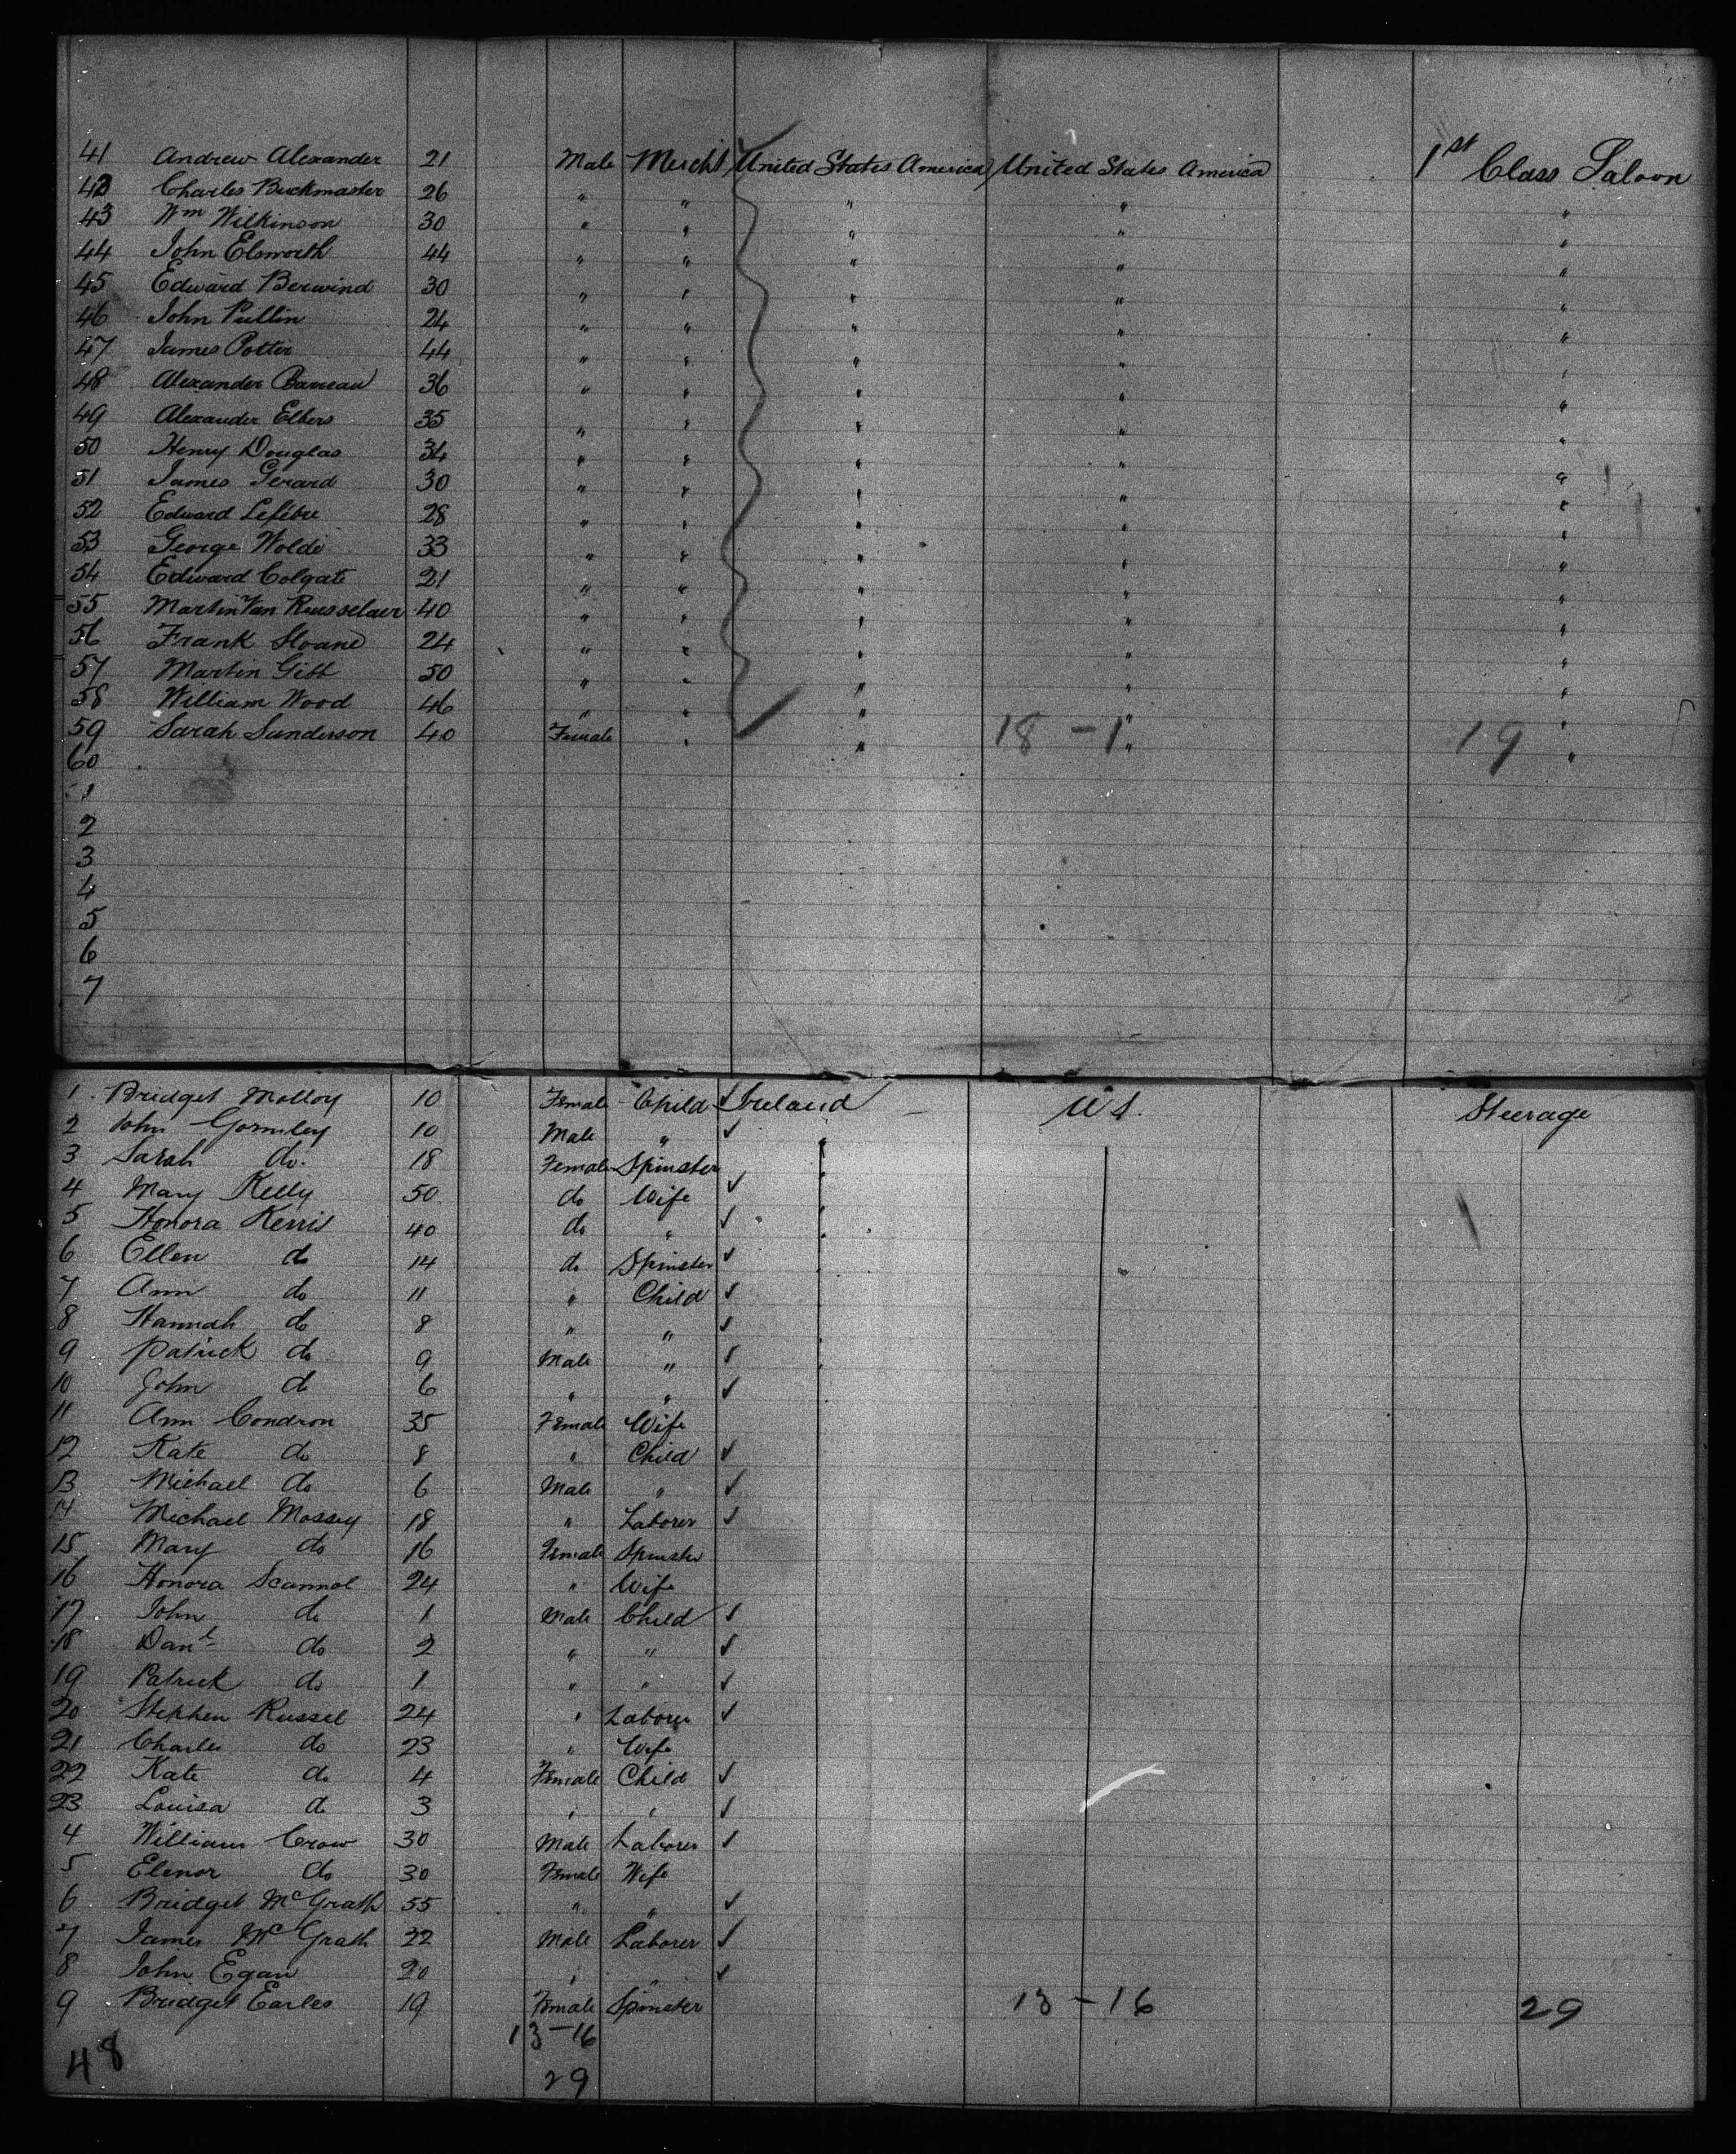 41 Andrew Alexander 21 Male Mercht United States America United States America 1st Class Saloon
42 Charles Buckmaster 26 " " " " "
43 Wm Wilkinson 30 " " " " "
44 John Elsworth 44 " " " " "
45 Edward Berwind 30 " " " " "
46 John Pullin 24 " " " " "
47 James Potter 44 " " " " "
48 Alexander Barreau 36 " " " " "
49 Alexander Elbers 35 " " " " "
50 Henry Douglas 34 " " " " "
51 James Gerard 30 " " " " "
52 Edward Lefebre 28 " " " " "
53 George Wolde 33 " " " " "
54 Edward Colgate 21 " " " " "
55 Martin Van Russelaer 40 " " " " "
56 Frank Sloane 24 " " " " "
57 Martin Gibb 50 " " " " "
58 William Wood 46 " " " " "
59 Sarah Sunderson 40 Female " " 18 - 1 " 19 "
60
1
2
3
4
5
6
7
1 Bridget Molloy 10 Female Child Ireland U S. Steerage
2 John Gormley 10 Male " "
3 Sarah do. 18 Female Spinster
4 Mary Kelly 50 do Wife
5 Honora Kerris 40 do "
6 Ellen do 14 do Spinster
7 Ann do 11 " Child
8 Hannah do 8 " "
9 Patrick do 9 Male "
10 John do 6 " "
11 Ann Condron 35 Female Wife
12 Kate do 8 " Child
13 Michael do 6 Male "
14 Michael Mossey 18 " Laborer
15 Mary do 16 Female Spinster
16 Honora Scannol 24 " Wife
17 John do 1 Male Child
18 Danl do 2 " "
19 Patrick do 1 " "
20 Stephen Russel 24 " Laborer
21 Charles do 23 " Wife
22 Kate do 4 Female Child
23 Louisa do 3 " "
4 William Crow 30 Male Laborer
5 Elenor do 30 Female Wife
6 Bridget McGrath 55 " "
7 James McGrath 22 Male Laborer
8 John Egan 20 " "
9 Bridget Earles 19 Female Spinster 13 - 16 29
13 - 16
48 29